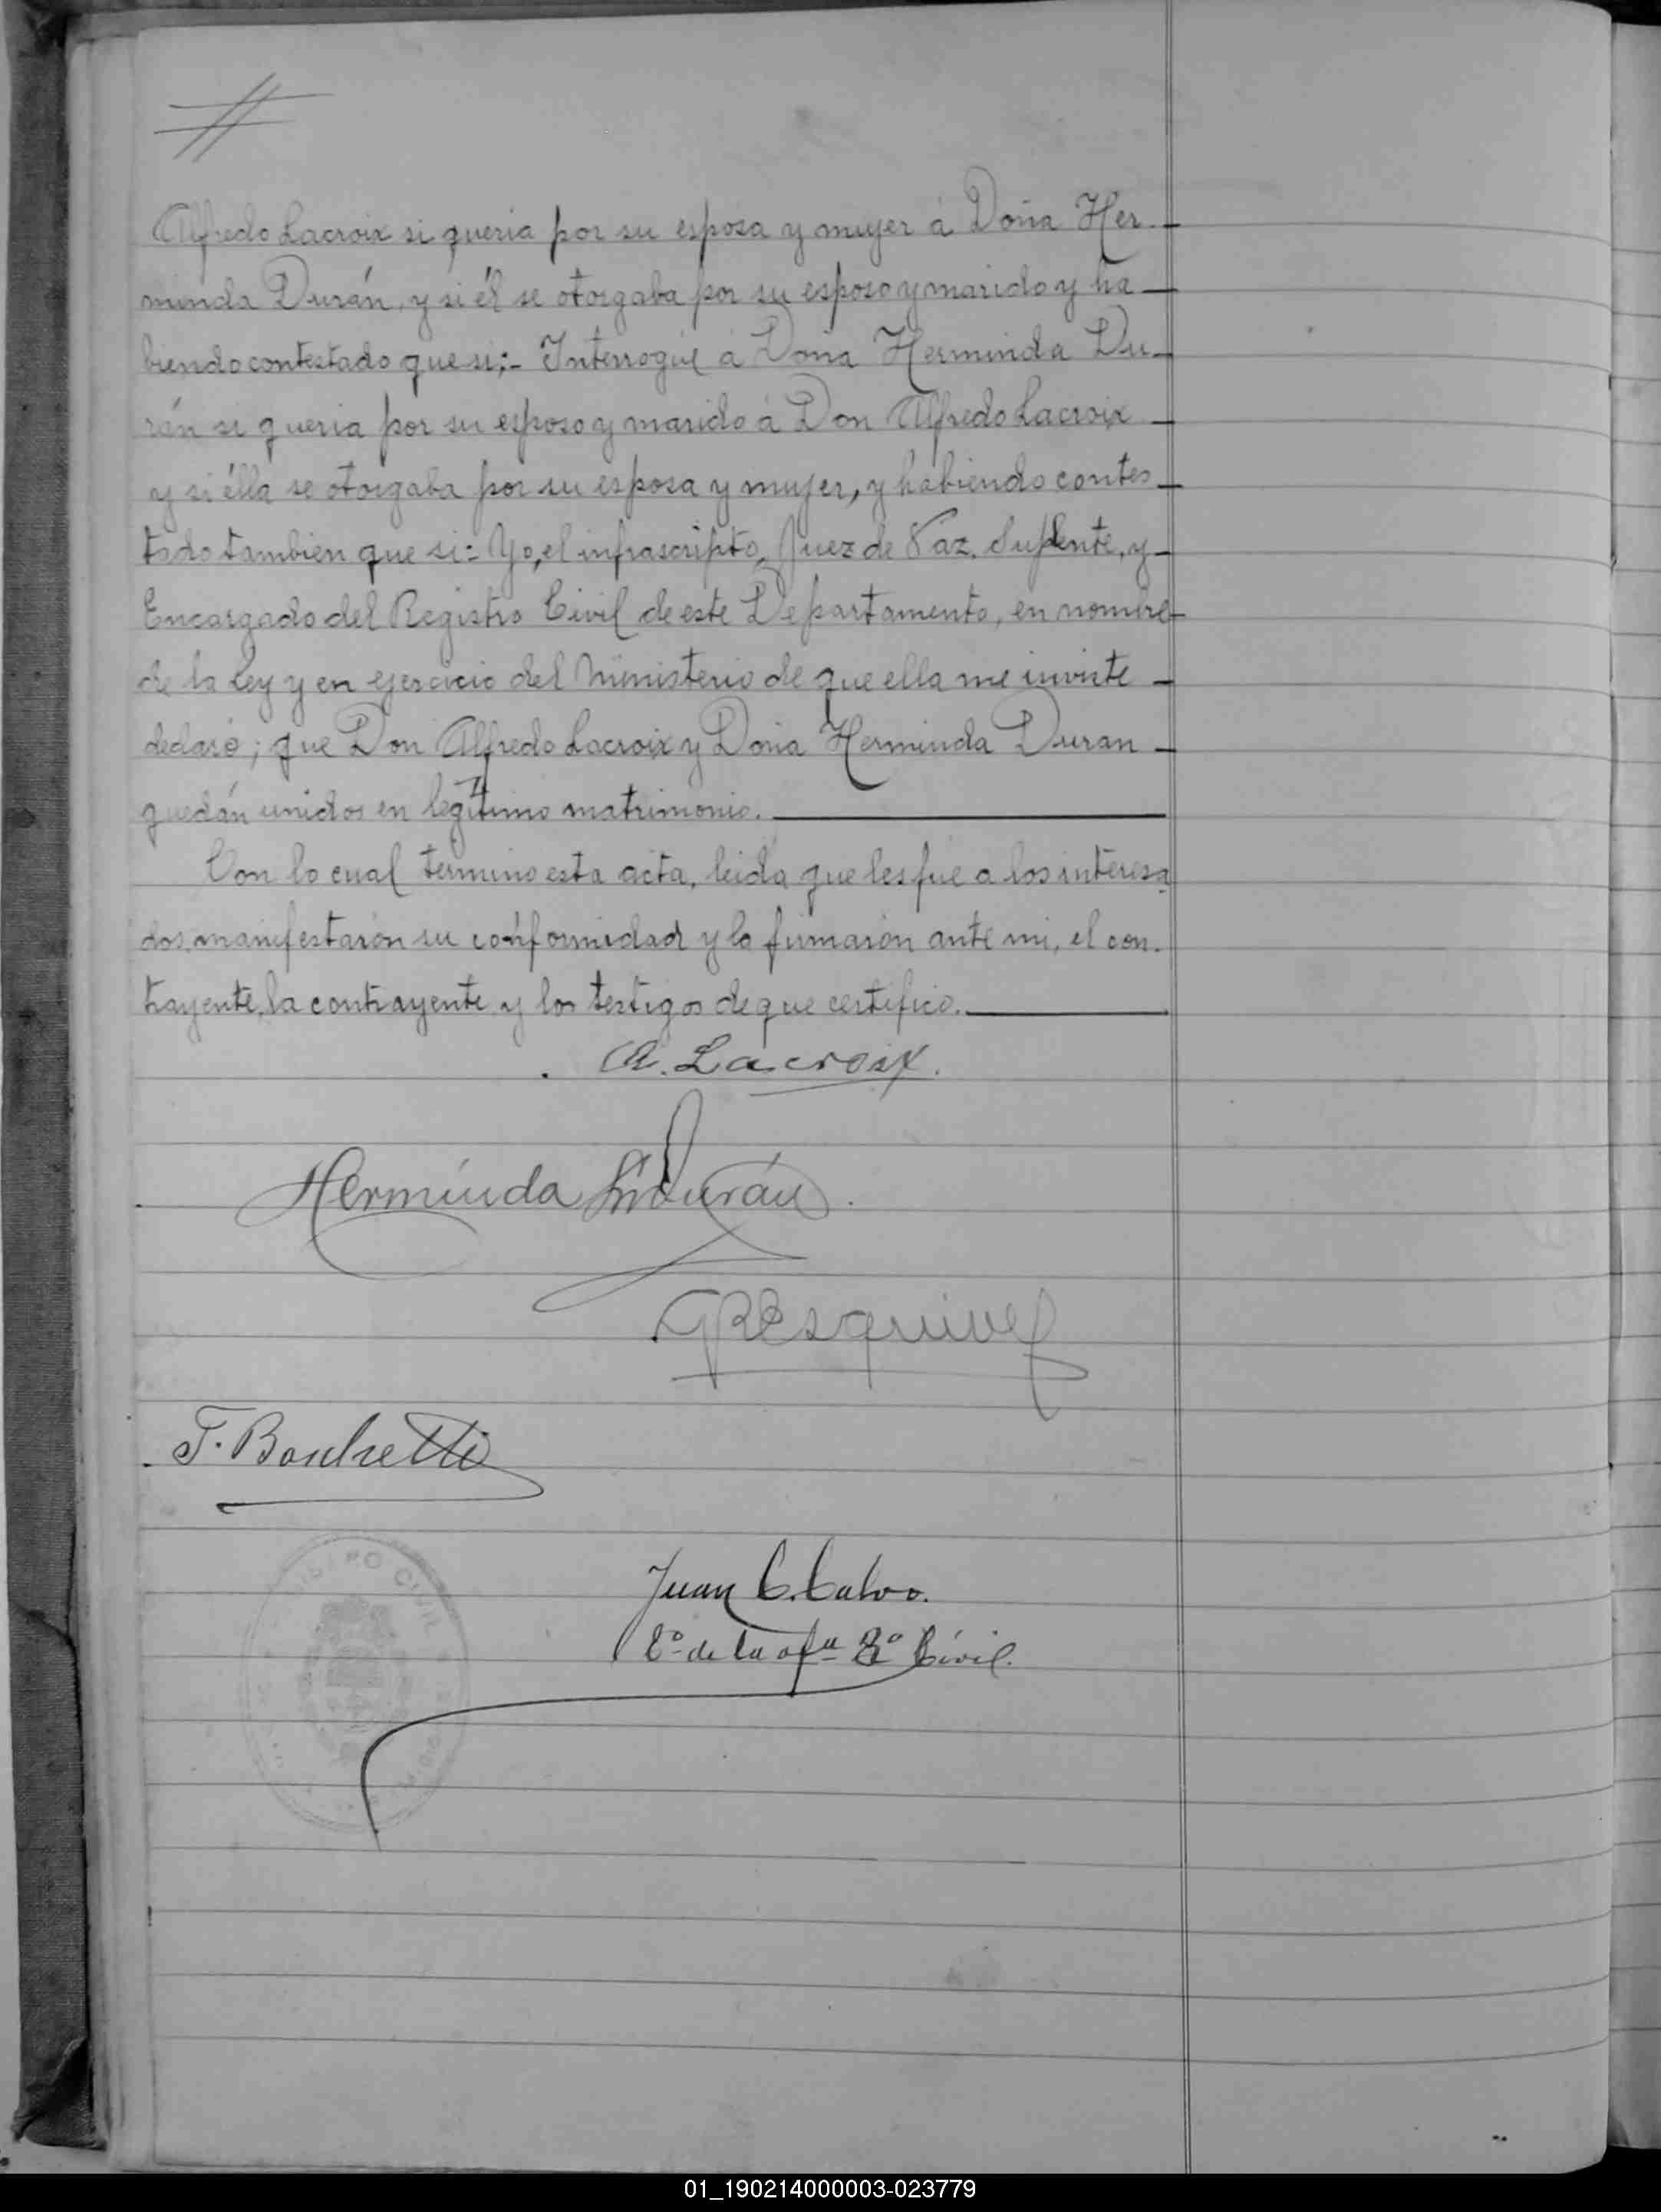 Alfredo Lacroix si queria por su esposa y mujer á Doña Her-
minda Durán, y si él se otorgaba por su esposo y marido y ha-
biendo contestado que si;- Interrogué á Doña Herminda Du-
rán si queria por su esposo y marido á Don Alfredo Lacroix
y si élla se otorgaba por su esposa y mujer, y habiendo contes-
tado tambien que si= Yo, el infrascripto, Juez de Paz, Suplente, y
Encargado del Registro Civil de este Departamento, en nombre
de la Ley y en ejercicio del Ministerio de que ella me inviste
declaro; que Don Alfredo Lacroix y Doña Herminda Duran
quedán unidos en legítimo matrimonio.
Con lo cual termino esta acta, leida que les fue a los interesa
dos, manifestarón su conformidad y la firmarón ante mi, el con-
trayente, la contrayente y los testigos de que certifico.
A. Lacroix.
Herminda Durán.
GREsquivel
Juan C. Calvo.
de la ofª Rº Civil.
REGISTRO CIVIL
01_190214000003-023779